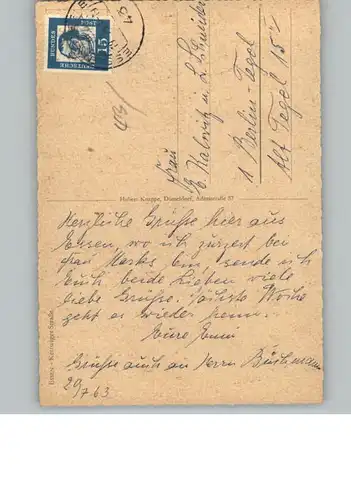 15
DEUTSCHE
BUNDES
POST
43/
Frau
E. Kalowitz u. L. Schneider
1 Berlin-Tegel
Alt Tegel 15
Hubert Knappe, Düsseldorf, Adersstraße 87
Essen - Kettwiger Straße
Herzliche Grüße hier aus
Essen, wo ich zurzeit bei
Frau Marks bin, sende ich
Euch beide Lieben viele
liebe Grüße. Nächste Woche
geht es wieder heim.
Eure Emmi
Grüße auch an Herrn Buschmann
29/7 63